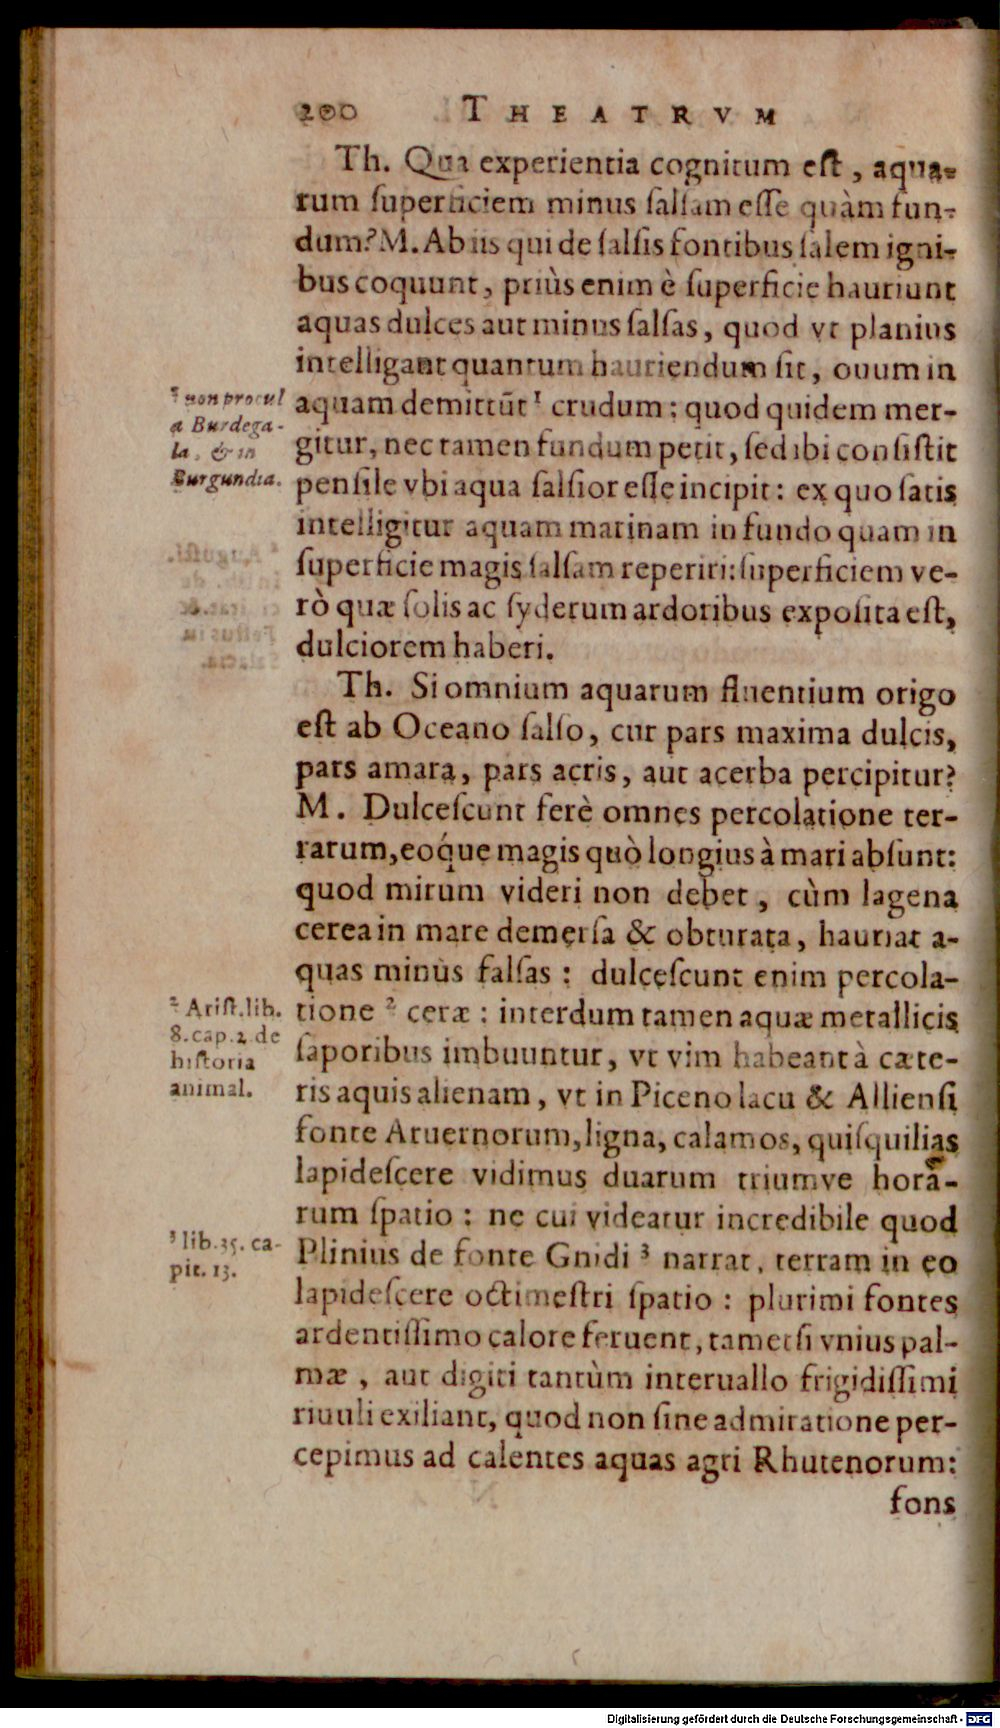 200 THEATRVM
Th. Qua experientia cognitum eſt, aqua-
rum ſuperficiem minus ſalſam eſſe quàm fun-
dum? M. Ab iis qui de ſalſis fontibus ſalem igni-
bus coquunt, priùs enim è ſuperficie hauriunt
aquas dulces aut minus ſalſas, quod vt planius
intelligant quantum hauriendum ſit, ouum in
aquam demittũt¹ crudum: quod quidem mer-
gitur, nec tamen fundum petit, ſed ibi conſiſtit
penſile vbi aqua ſalſior eſſe incipit: ex quo ſatis
intelligitur aquam marinam in fundo quam in
ſuperficie magis ſalſam reperiri: ſuperficiem ve-
rò quæ ſolis ac ſyderum ardoribus expoſita eſt,
dulciorem haberi.
¹ non procul
a Burdega-
la, & in
Burgundia.
Th. Si omnium aquarum fluentium origo
eſt ab Oceano ſalſo, cur pars maxima dulcis,
pars amara, pars acris, aut acerba percipitur?
M. Dulceſcunt ferè omnes percolatione ter-
rarum, eoq́ue magis quò longius à mari abſunt:
quod mirum videri non debet, cùm lagena
cerea in mare demerſa & obturata, hauriat a-
quas minùs ſalſas: dulceſcunt enim percola-
tione ² ceræ: interdum tamen aquæ metallicis
ſaporibus imbuuntur, vt vim habeant à cæte-
ris aquis alienam, vt in Piceno lacu & Allienſi
fonte Aruernorum, ligna, calamos, quiſquilias
lapideſcere vidimus duarum triumve hora-
rum ſpatio: ne cui videatur incredibile quod
Plinius de fonte Gnidi ³ narrat, terram in eo
lapideſcere octimeſtri ſpatio: plurimi fontes
ardentiſſimo calore feruent, tametſi vnius pal-
mæ, aut digiti tantùm interuallo frigidiſſimi
riuuli exiliant, quod non ſine admiratione per-
cepimus ad calentes aquas agri Rhutenorum:
fons
² Ariſt. lib.
8. cap. 2. de
hiſtoria
animal.
³ lib. 35. ca-
pit. 13.
Digitalisierung gefördert durch die Deutsche Forschungsgemeinschaft - DFG